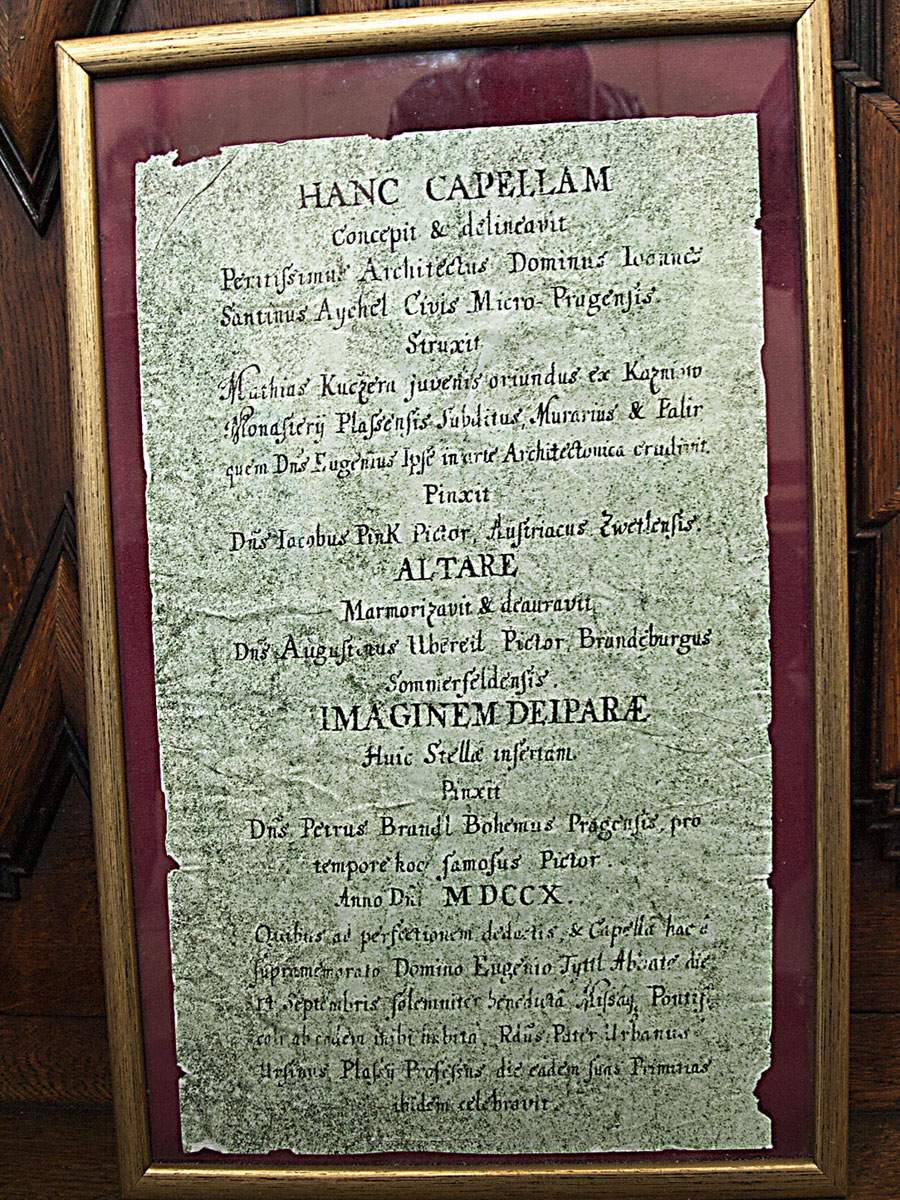 HANC CAPELLAM
Concepit & delineavit
Peritiſsimus Architectus Dominus Ioannes
Santinus Aychel Civis Micro-Pragensis.
Struxit
Mathias Kuczera juvenis oriundus ex Kazniow
Monaſterÿ Plaſsensis Subditus, Murarius & Palir
quem Dn̄s Eugenius Ipſe in arte Architectonica erudivit.
Pinxit
Dn̄s Iacobus Pink Pictor, Auſtriacus Zwetlenſis.
ALTARE
Marmorizavit & deauravit
Dn̄s Auguſtinus Ubereil Pictor, Brandeburgus
Sommerfeldenſis
IMAGINEM DEIPARÆ
Huic Stellæ inſertam.
Pinxit
Dn̄s Petrus Brandl Bohemus Pragenſis, pro
tempore hoc famoſus Pictor.
Anno Dn̄i MDCCX.
Quibus ad perfectionem deductis, & Capella hac à
ſupramemorato Domino Eugenio Tyttl Abbate die
14 Septembris ſolemniter benedicta Miſsaq, Pontiſi,
ab eodem inibi habita, Rdūs Pater Urbanus
Urſinus Plaſsÿ Profeſsus die eadem ſuas Primitias
ibidem celebravit.